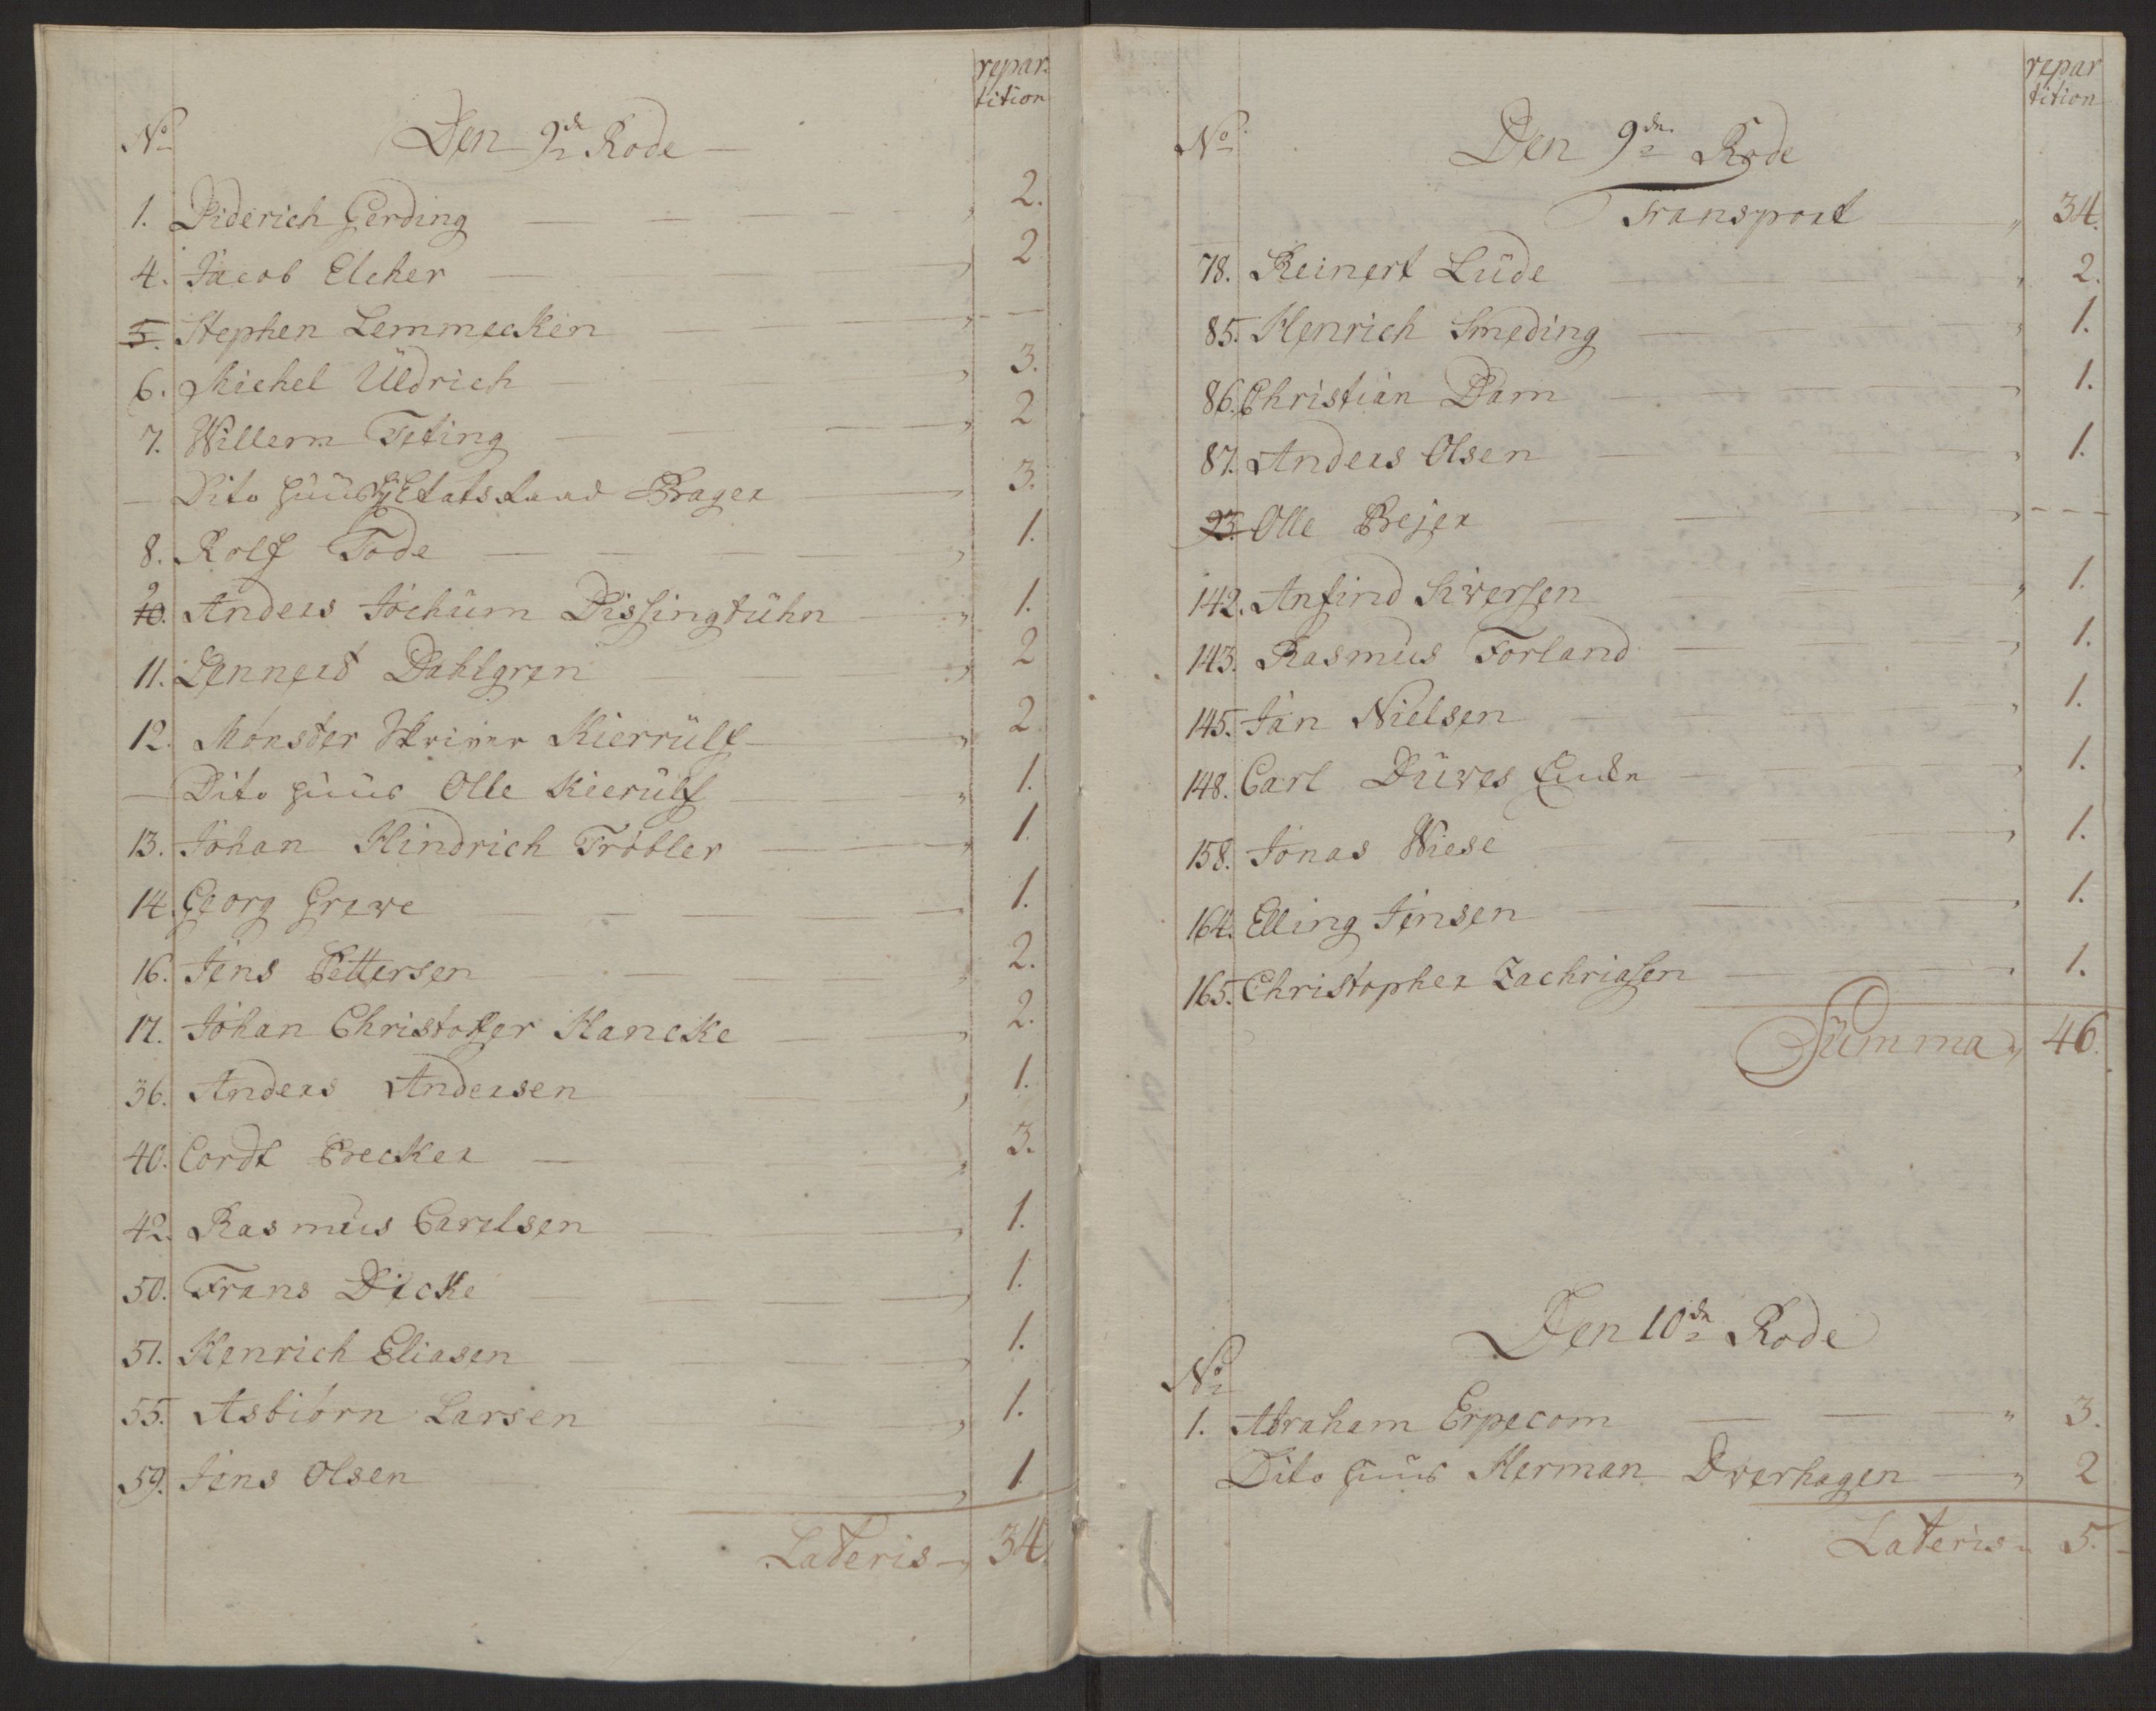 repar
tition
No
Den 9de Rode
1. Diderich Gerding 2.
4. Jacob Elcher 2
5. Stephen Lemmecken
6. Michel Üldrich 3.
7. Willem Teting 2
Dito huus Etatsraad Krager 3.
8. Rolf Tode 1.
9
10. Anders Jochum Dissingtuhn 1.
11. Lennerd Dahlgren 2
12. Mönster Skriver Kierrülf 2
Dito huus Olle Kierülf 1.
13. Johan Hindrich Tröbler 1.
14. Georg Greve 1.
16. Jens Pettersen 2.
17. Johan Christoffer Hancke 2.
36. Anders Andersen 1.
40. Cordt Becker 3.
42. Rasmus Carelsen 1.
50. Frans Dicke 1.
51. Henrich Eliasen 1.
55. Asbiörn Larsen 1.
59. Jens Olsen 1
Lateris 34.
repar
tition
No
Den 9de Rode
Transport 34.
78. Reinert Lüde 2.
85. Henrich Smeding 1.
86. Christian Dam 1.
87. Anders Olsen 1.
93. Olle Bejer
142. Anfind Siversen 1.
143. Rasmus Forland 1.
145. Jan Nielsen 1.
148. Carl Düwes Enke 1.
158. Jonas Wiese 1.
164. Elling Jensen 1.
165. Christopher Zachriasen 1.
Summa 46.
Den 10de Rode
No
1. Abraham Erpecom 3.
Dito huus Herman Dverhagen 2
Lateris 5.